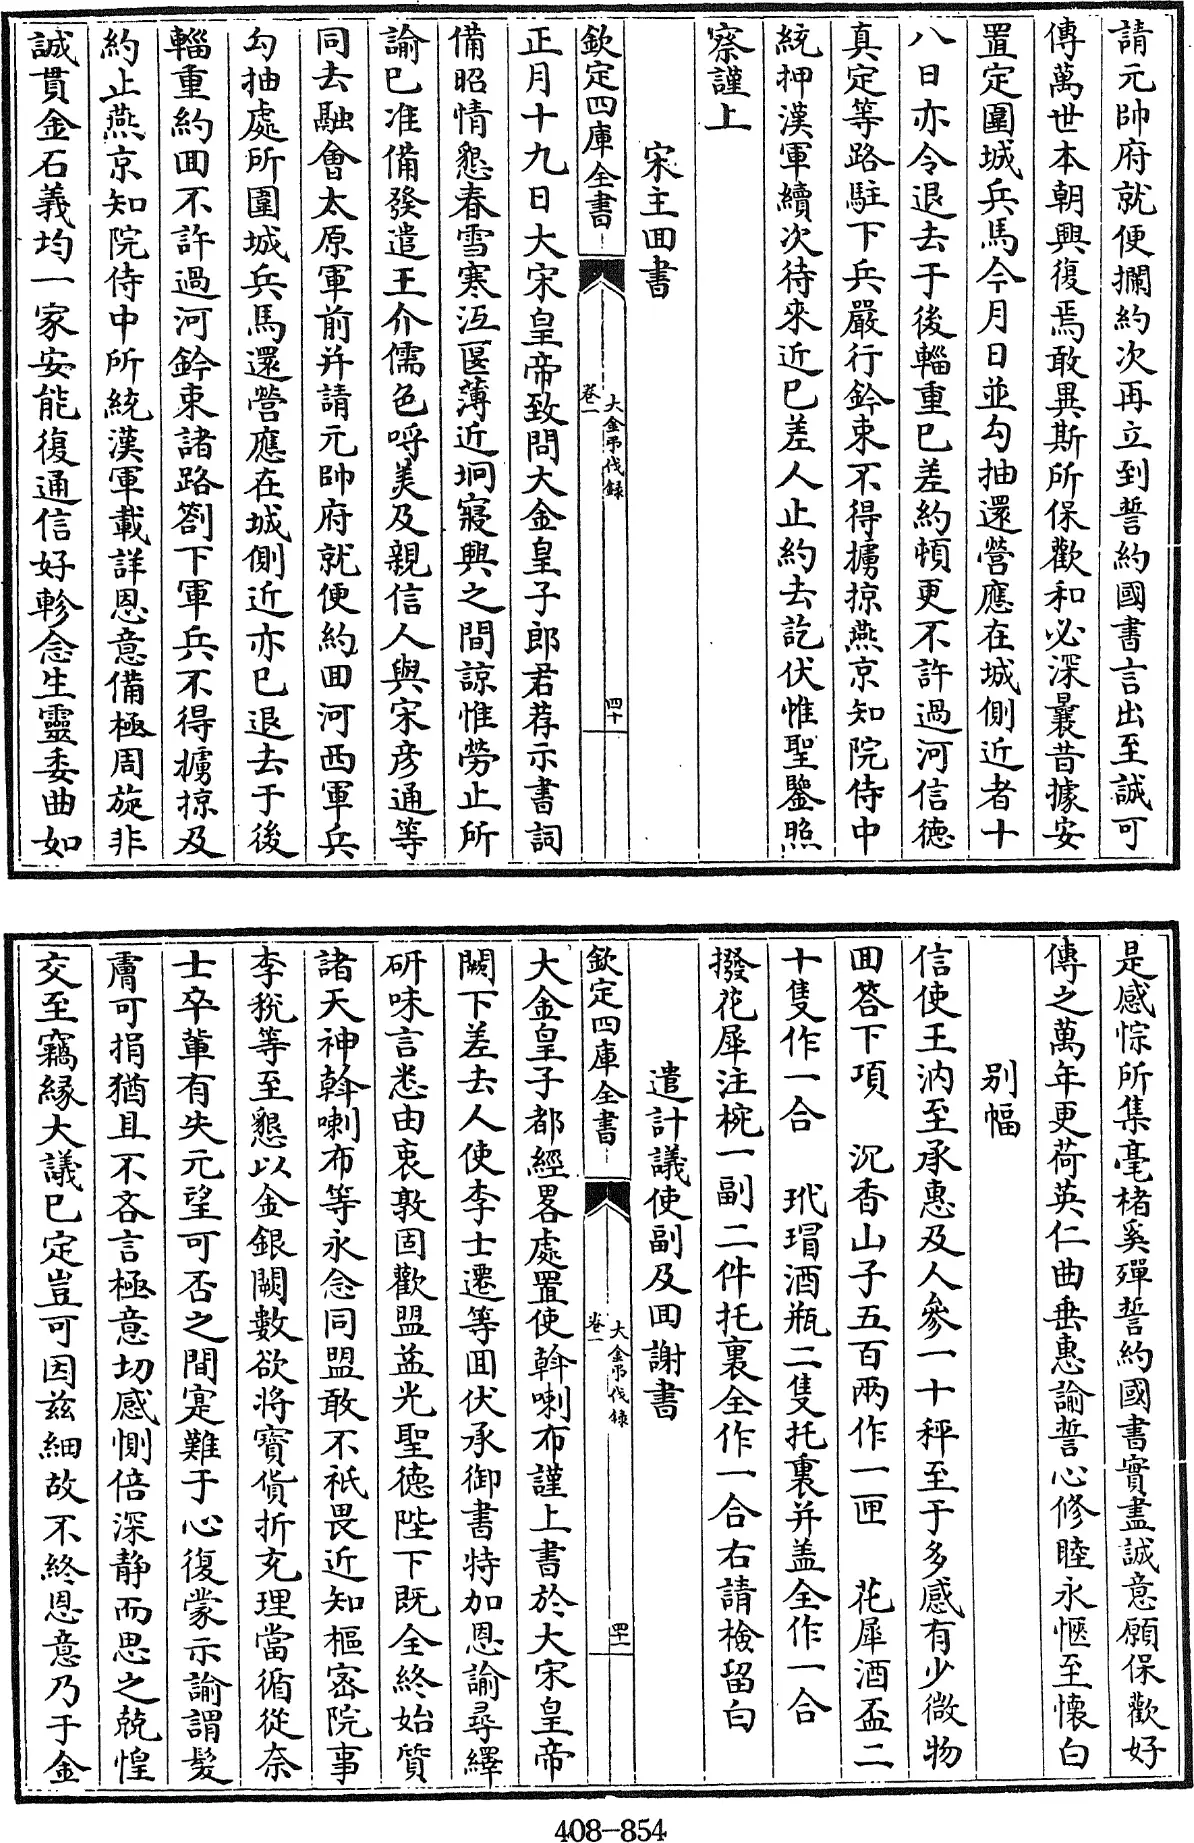 請元帥府就便攔約次再立到誓約國書言出至誠可
傳萬世本朝興復焉敢異斯所保歡和必深曩昔據安
置定圍城兵馬今月日並勾抽還營應在城側近者十
八日亦令退去于後輜重已差約頓更不許過河信德
真定等路駐下兵嚴行鈐束不得擄掠燕京知院侍中
統押漢軍續次待來近已差人止約去訖伏惟聖鑒照
察謹上
宋主回書
欽定四庫全書
大金弔伐錄
卷一
四十
正月十九日大宋皇帝致問大金皇子郎君荐示書詞
備昭情懇春雪寒沍匽薄近坰寢興之間諒惟勞止所
諭已准備發遣王介儒色呼美及親信人與宋彥通等
同去融會太原軍前并請元帥府就便約回河西軍兵
勾抽處所圍城兵馬還營應在城側近亦已退去于後
輜重約回不許過河鈐束諸路劄下軍兵不得擄掠及
約止燕京知院侍中所統漢軍載詳恩意備極周旋非
誠貫金石義均一家安能復通信好軫念生靈委曲如
是感悰所集毫楮奚殫誓約國書實盡誠意願保歡好
傳之萬年更荷英仁曲垂惠諭誓心修睦永愜至懷白
別幅
信使王汭至承惠及人參一十秤至于多感有少微物
回答下項 沉香山子五百兩作一匣 花犀酒盃二
十隻作一合 玳瑁酒瓶二隻托裏并蓋全作一合
撥花犀注椀一副二件托裏全作一合右請檢留白
遣計議使副及回謝書
欽定四庫全書
大金弔伐錄
卷一
四十一
大金皇子都經畧處置使斡喇布謹上書於大宋皇帝
闕下差去人使李士遷等回伏承御書特加恩諭尋繹
研味言悉由衷敦固歡盟益光聖德陛下既全終始質
諸天神斡喇布等永念同盟敢不祇畏近知樞密院事
李梲等至懇以金銀闕數欲將寶貨折充理當循從奈
士卒輩有失元望可否之間寔難于心復蒙示諭謂髮
膚可捐猶且不吝言極意切感惻倍深靜而思之兢惶
交至竊緣大議已定豈可因茲細故不終恩意乃于金
408-854